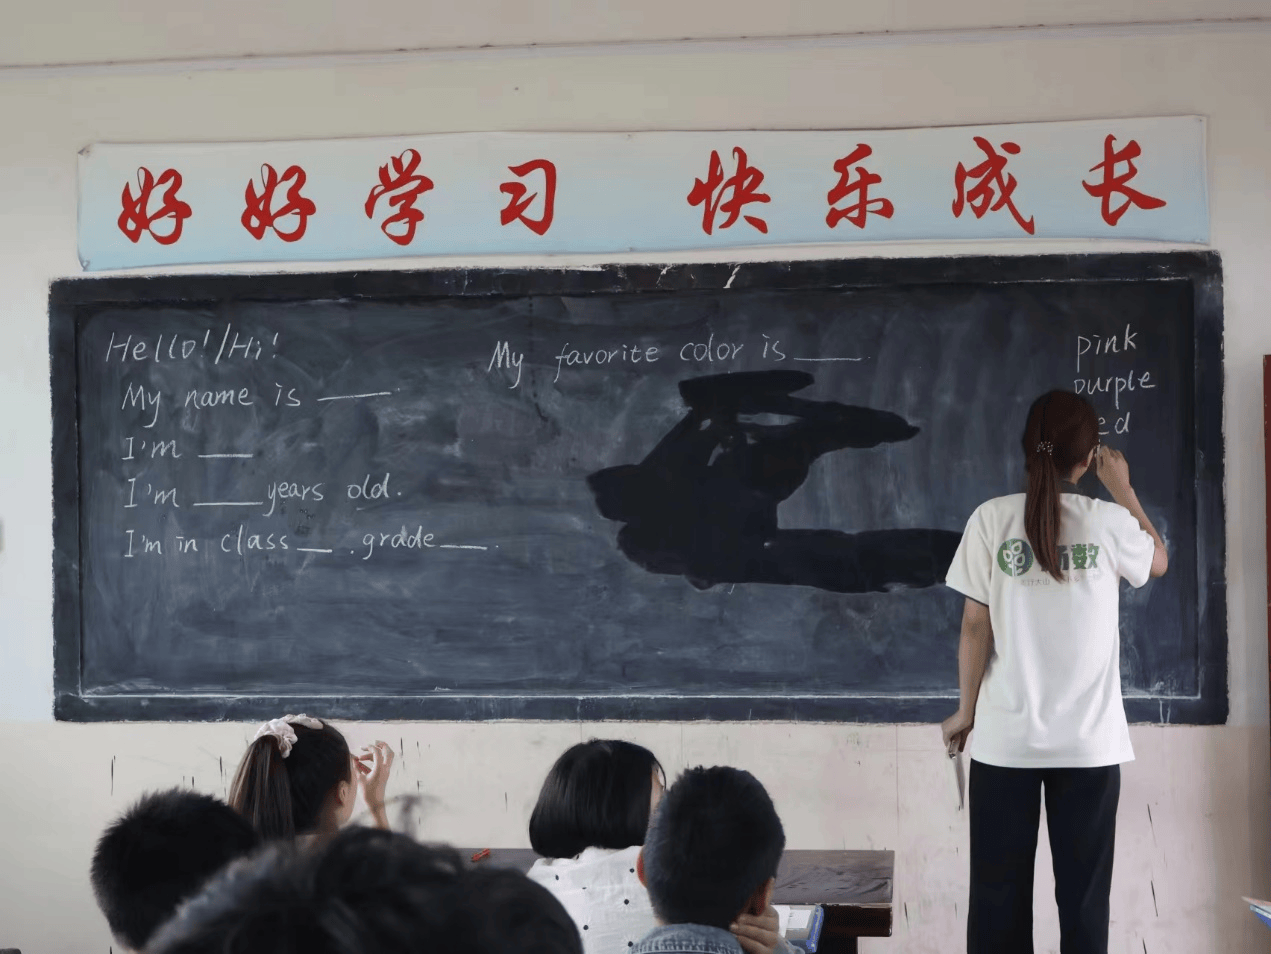 好好学习 快乐成长
Hello!/Hi!
My name is ____.
I'm ____
I'm ____ years old.
I'm in class ___. grade ____.
My favorite color is ____.
pink
purple
数